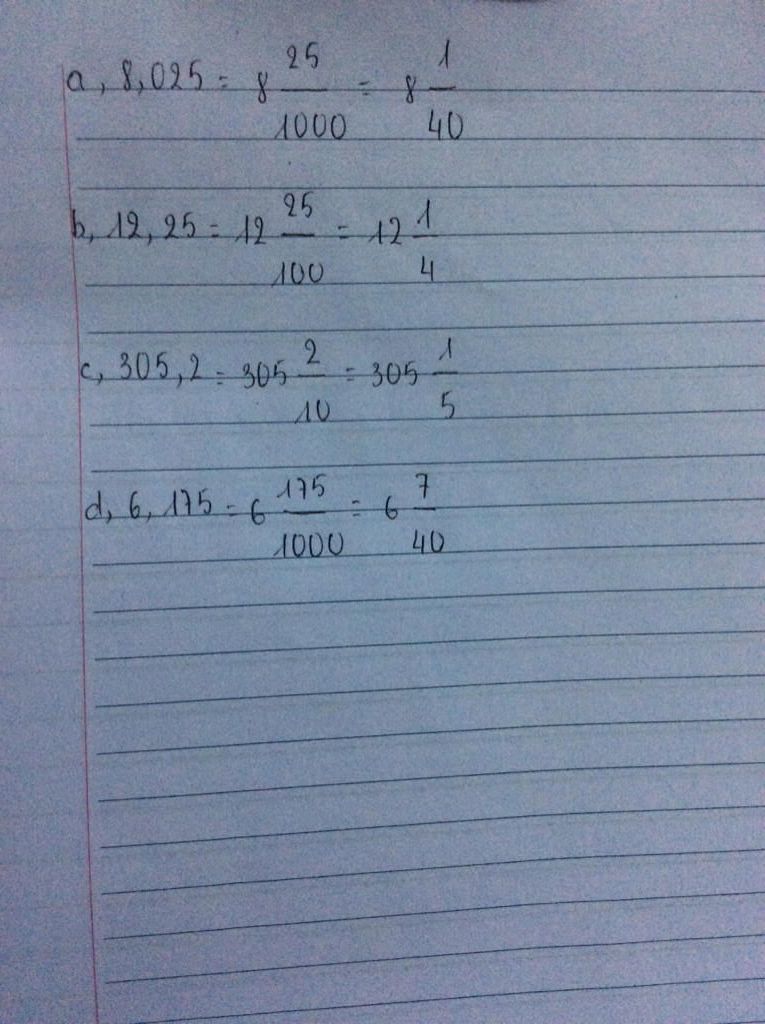 a, 8,025 = 8 25/1000 = 8 1/40
b, 12,25 = 12 25/100 = 12 1/4
c, 305,2 = 305 2/10 = 305 1/5
d, 6,175 = 6 175/1000 = 6 7/40